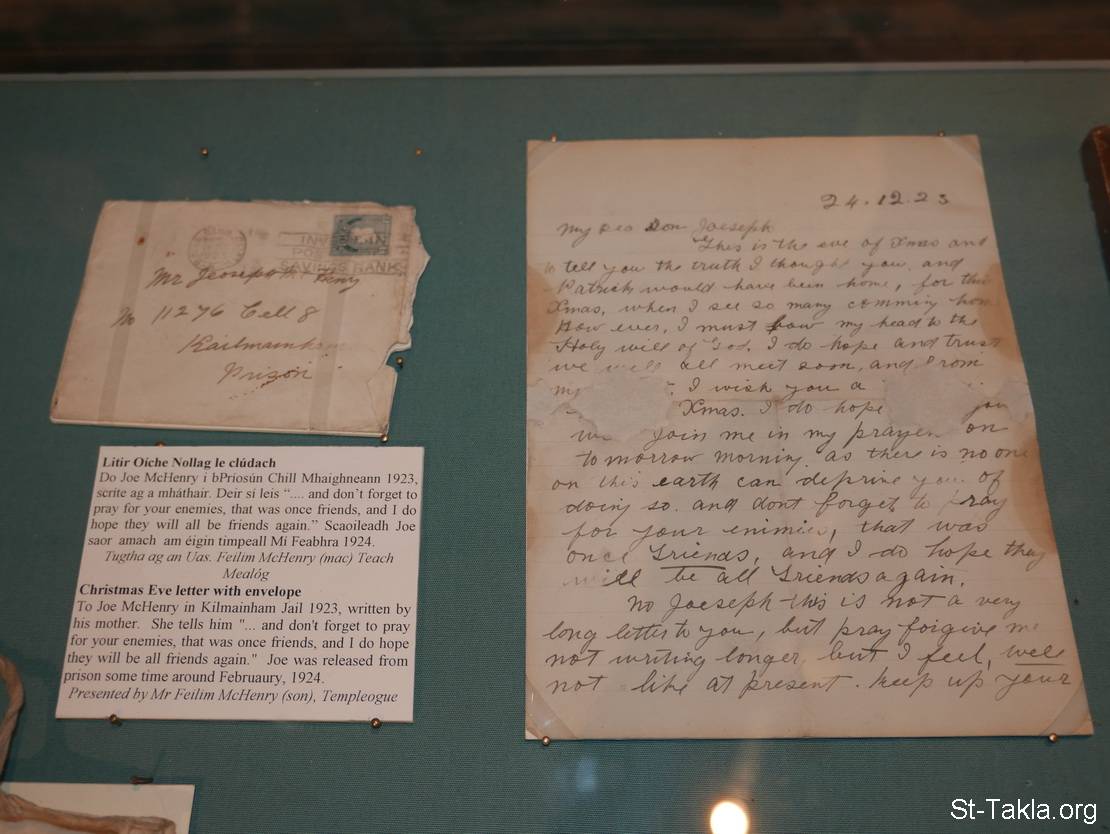 INVEST IN
SAVINGS BANK
Mr Joesoph
No 11276 Cell 8
Kailmainh
Prison
Litir Oíche Nollag le clúdach
Do Joe McHenry i bPríosún Chill Mhaighneann 1923,
scríte ag a mháthair. Deir sí leis “.... and don’t forget to
pray for your enemies, that was once friends, and I do
hope they will all be friends again.” Scaoileadh Joe
saor amach am éigin timpeall Mí Feabhra 1924.
Tugtha ag an Uas. Feilim McHenry (mac) Teach
Mealóg
Christmas Eve letter with envelope
To Joe McHenry in Kilmainham Jail 1923, written by
his mother. She tells him "... and don't forget to pray
for your enemies, that was once friends, and I do hope
they will be all friends again." Joe was released from
prison some time around Februaury, 1924.
Presented by Mr Feilim McHenry (son), Templeogue
24.12.23
My Son Joeseph
This is the eve of Xmas and
to tell you the truth I thought you, and
Patrick would have been home, for this
Xmas, when I see so many comming home
How ever, I must bow my head to the
Holy will of God. I do hope and trust
we will all meet soon, and from
my I wish you a
Xmas. I do hope you
join me in my prayer on
tomorrow morning. as there is no one
on this earth can deprive you of
doing so. and dont forget to pray
for your enimies, that was
once friends, and I do hope they
will be all friends again.
No Joeseph this is not a very
long letter to you, but pray forgive me
not writing longer, but I feel, well
not like at present. Keep up your
St-Takla.org